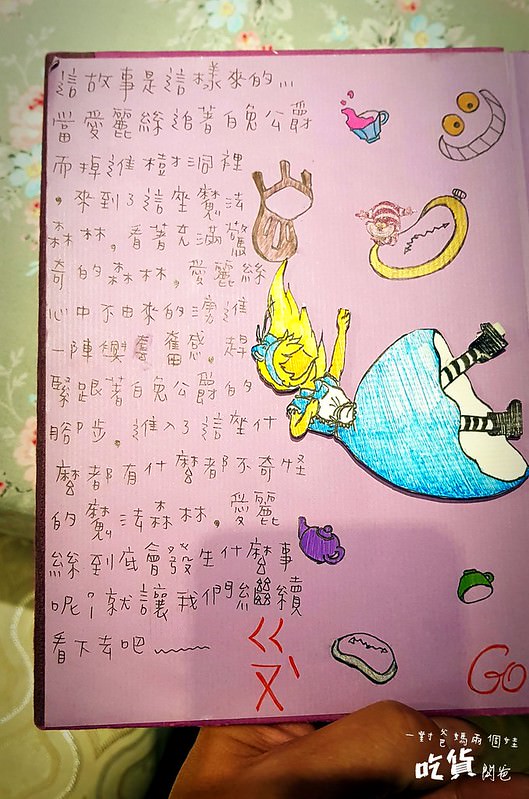 這故事是這樣來的...
當愛麗絲追著白兔公爵
而掉進樹洞裡
，來到了這座魔法
森林，看著充滿驚
奇的森林，愛麗絲
心中不由來的湧進
一陣興奮感。趕
緊跟著白兔公爵的
腳步。進入了這座什
麼都有什麼都不奇怪
的魔法森林。愛麗
絲到底會發生什麼事
呢?就讓我們繼續
看下去吧~~~
ㄍㄡˋ
Go
一對爸媽兩個娃
吃貨闆爸